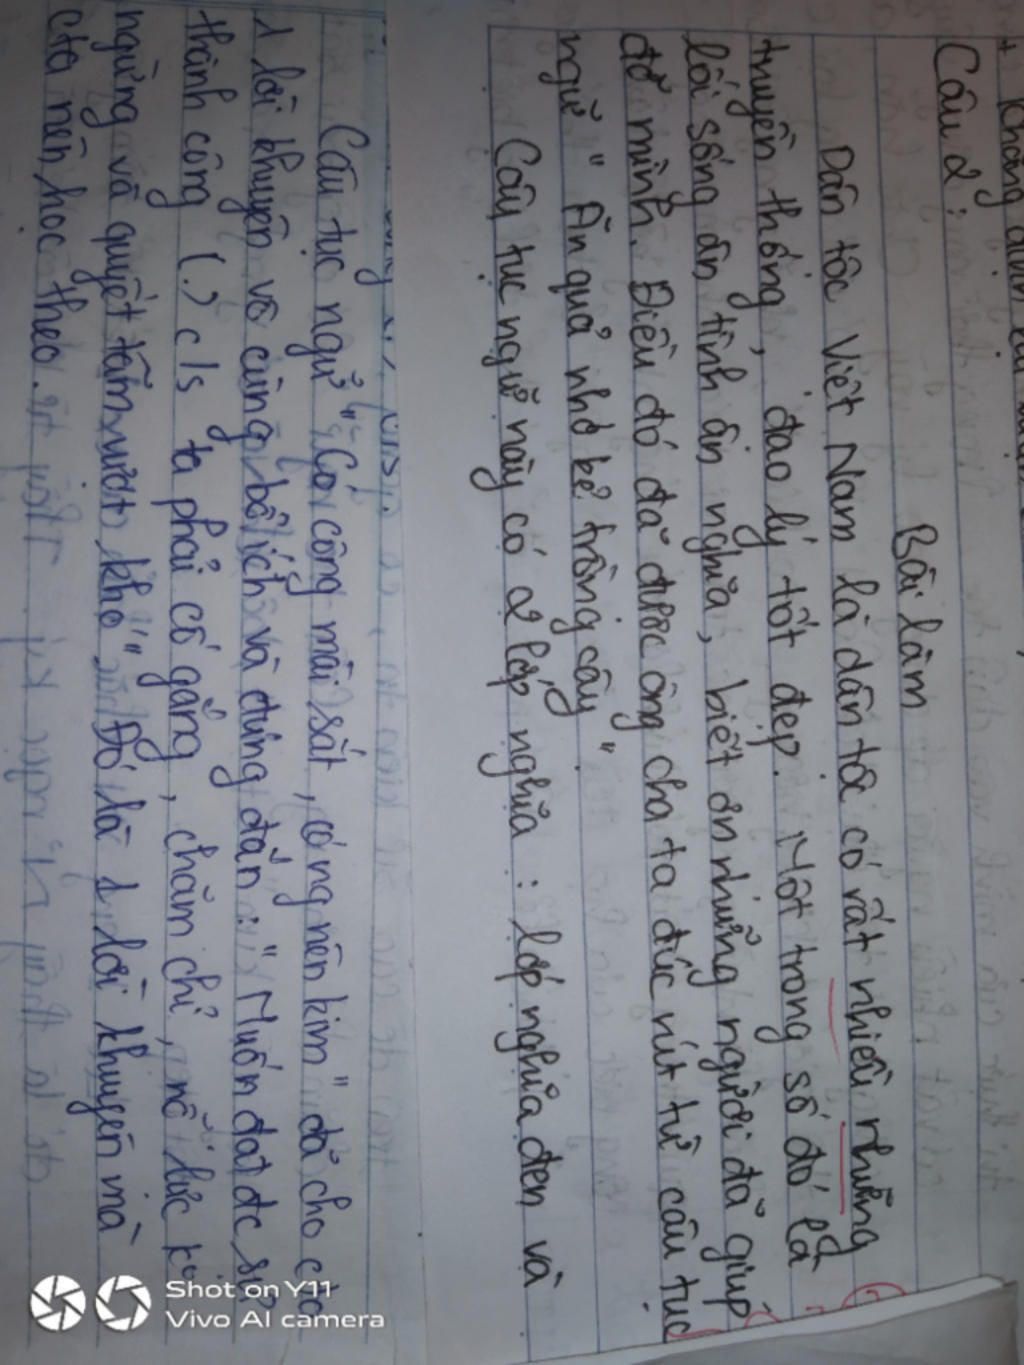 Câu 2:
Bài làm
Dân tộc Việt Nam là dân tộc có rất nhiều những
truyền thống, đạo lý tốt đẹp. Một trong số đó là
lối sống ân tình ân nghĩa, biết ơn những người đã giúp
đỡ mình. Điều đó đã được ông cha ta đúc rút từ câu tục
ngữ " Ăn quả nhớ kẻ trồng cây"
Câu tục ngữ này có 2 lớp nghĩa : lớp nghĩa đen và
Câu tục ngữ "Có công mài sắt, có ngày nên kim" đã cho
1 lời khuyên vô cùng bổ ích và đúng đắn : " Muốn đạt đc sự
thành công (.) c/s ta phải cố gắng, chăm chỉ, nỗ lực
ngừng và quyết tâm vượt khó" Đó là 1 lời khuyên mà
cta nên học theo.
Shot on Y11
Vivo AI camera